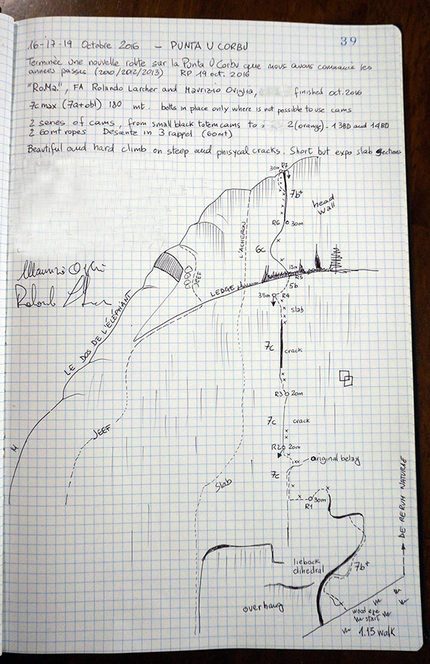 39
16-17-19 Octobre 2016 - PUNTA U CORBU
Terminée une nouvelle route sur la Punta U Corbu que nous avons commencé les
années passée (2010/2012/2013) RP 19 oct. 2016
"RoMa", FA Rolando Larcher and Maurizio Oviglia, finished oct. 2016
7c max (7a+obl) 180 mt bolts in place only where is not possible to use cams
2 series of cams, from small black totem cams to 2 (orange). 13BD and 14BD
2 60mt ropes Desiente in 3 rappel (60mt)
Beautiful and hard climb on steep and phisycal cracks. Short but expo slab sections
30m R7
7b+
head
wall
R6 30m
6c
L'ACHERON
JEEF
15m
R5
5b
LEDGE
35m R4
slab
7c
crack
LE DOS DE L'ELEPHANT
R3 20m
7c
crack
JEEF
R2 20m
original belay
7c
slab
R1 30m
DE RERUM NATURAE
lieback
dihedral
7b+
overhang
start
1.15 walk